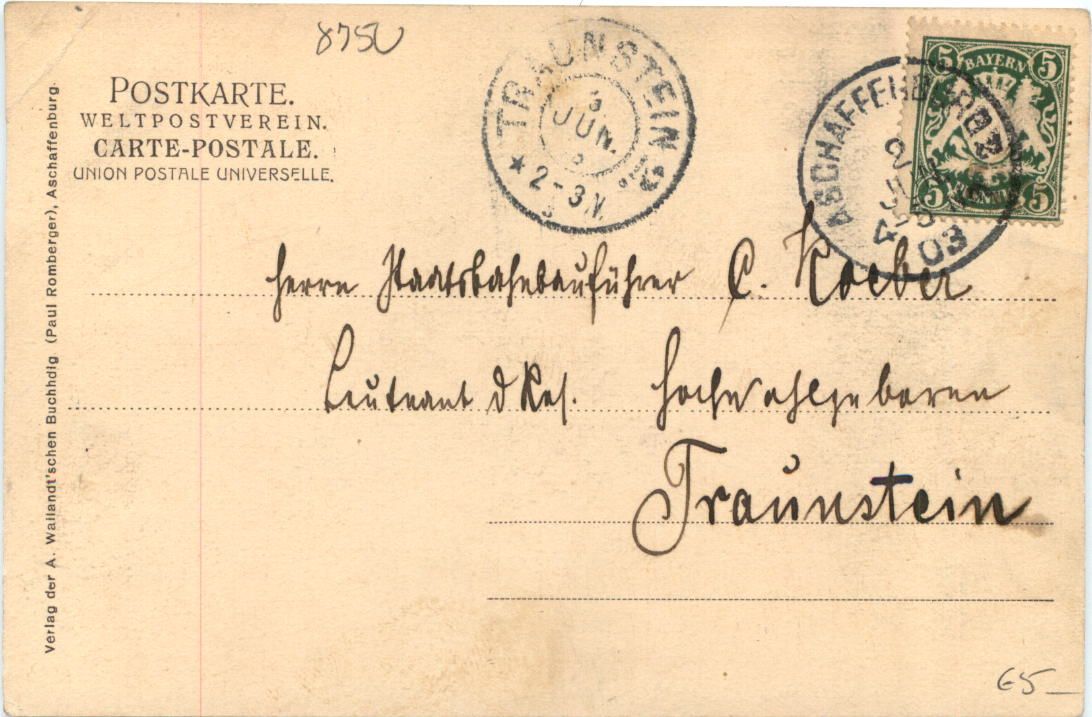 8750
POSTKARTE.
WELTPOSTVEREIN.
CARTE-POSTALE.
UNION POSTALE UNIVERSELLE.
TRAUNSTEIN 2
3
JUN.
2-3 N.
5 BAYERN 5
5 PFENNIG 5
ASCHAFFENBURG
2
4-5
03
Herrn Staatsbahnbauführer C. Koeber
Leutnant d Res. Hochwohlgeboren
Traunstein
Verlag der A. Wailandt'schen Buchhdlg (Paul Romberger), Aschaffenburg.
€5_